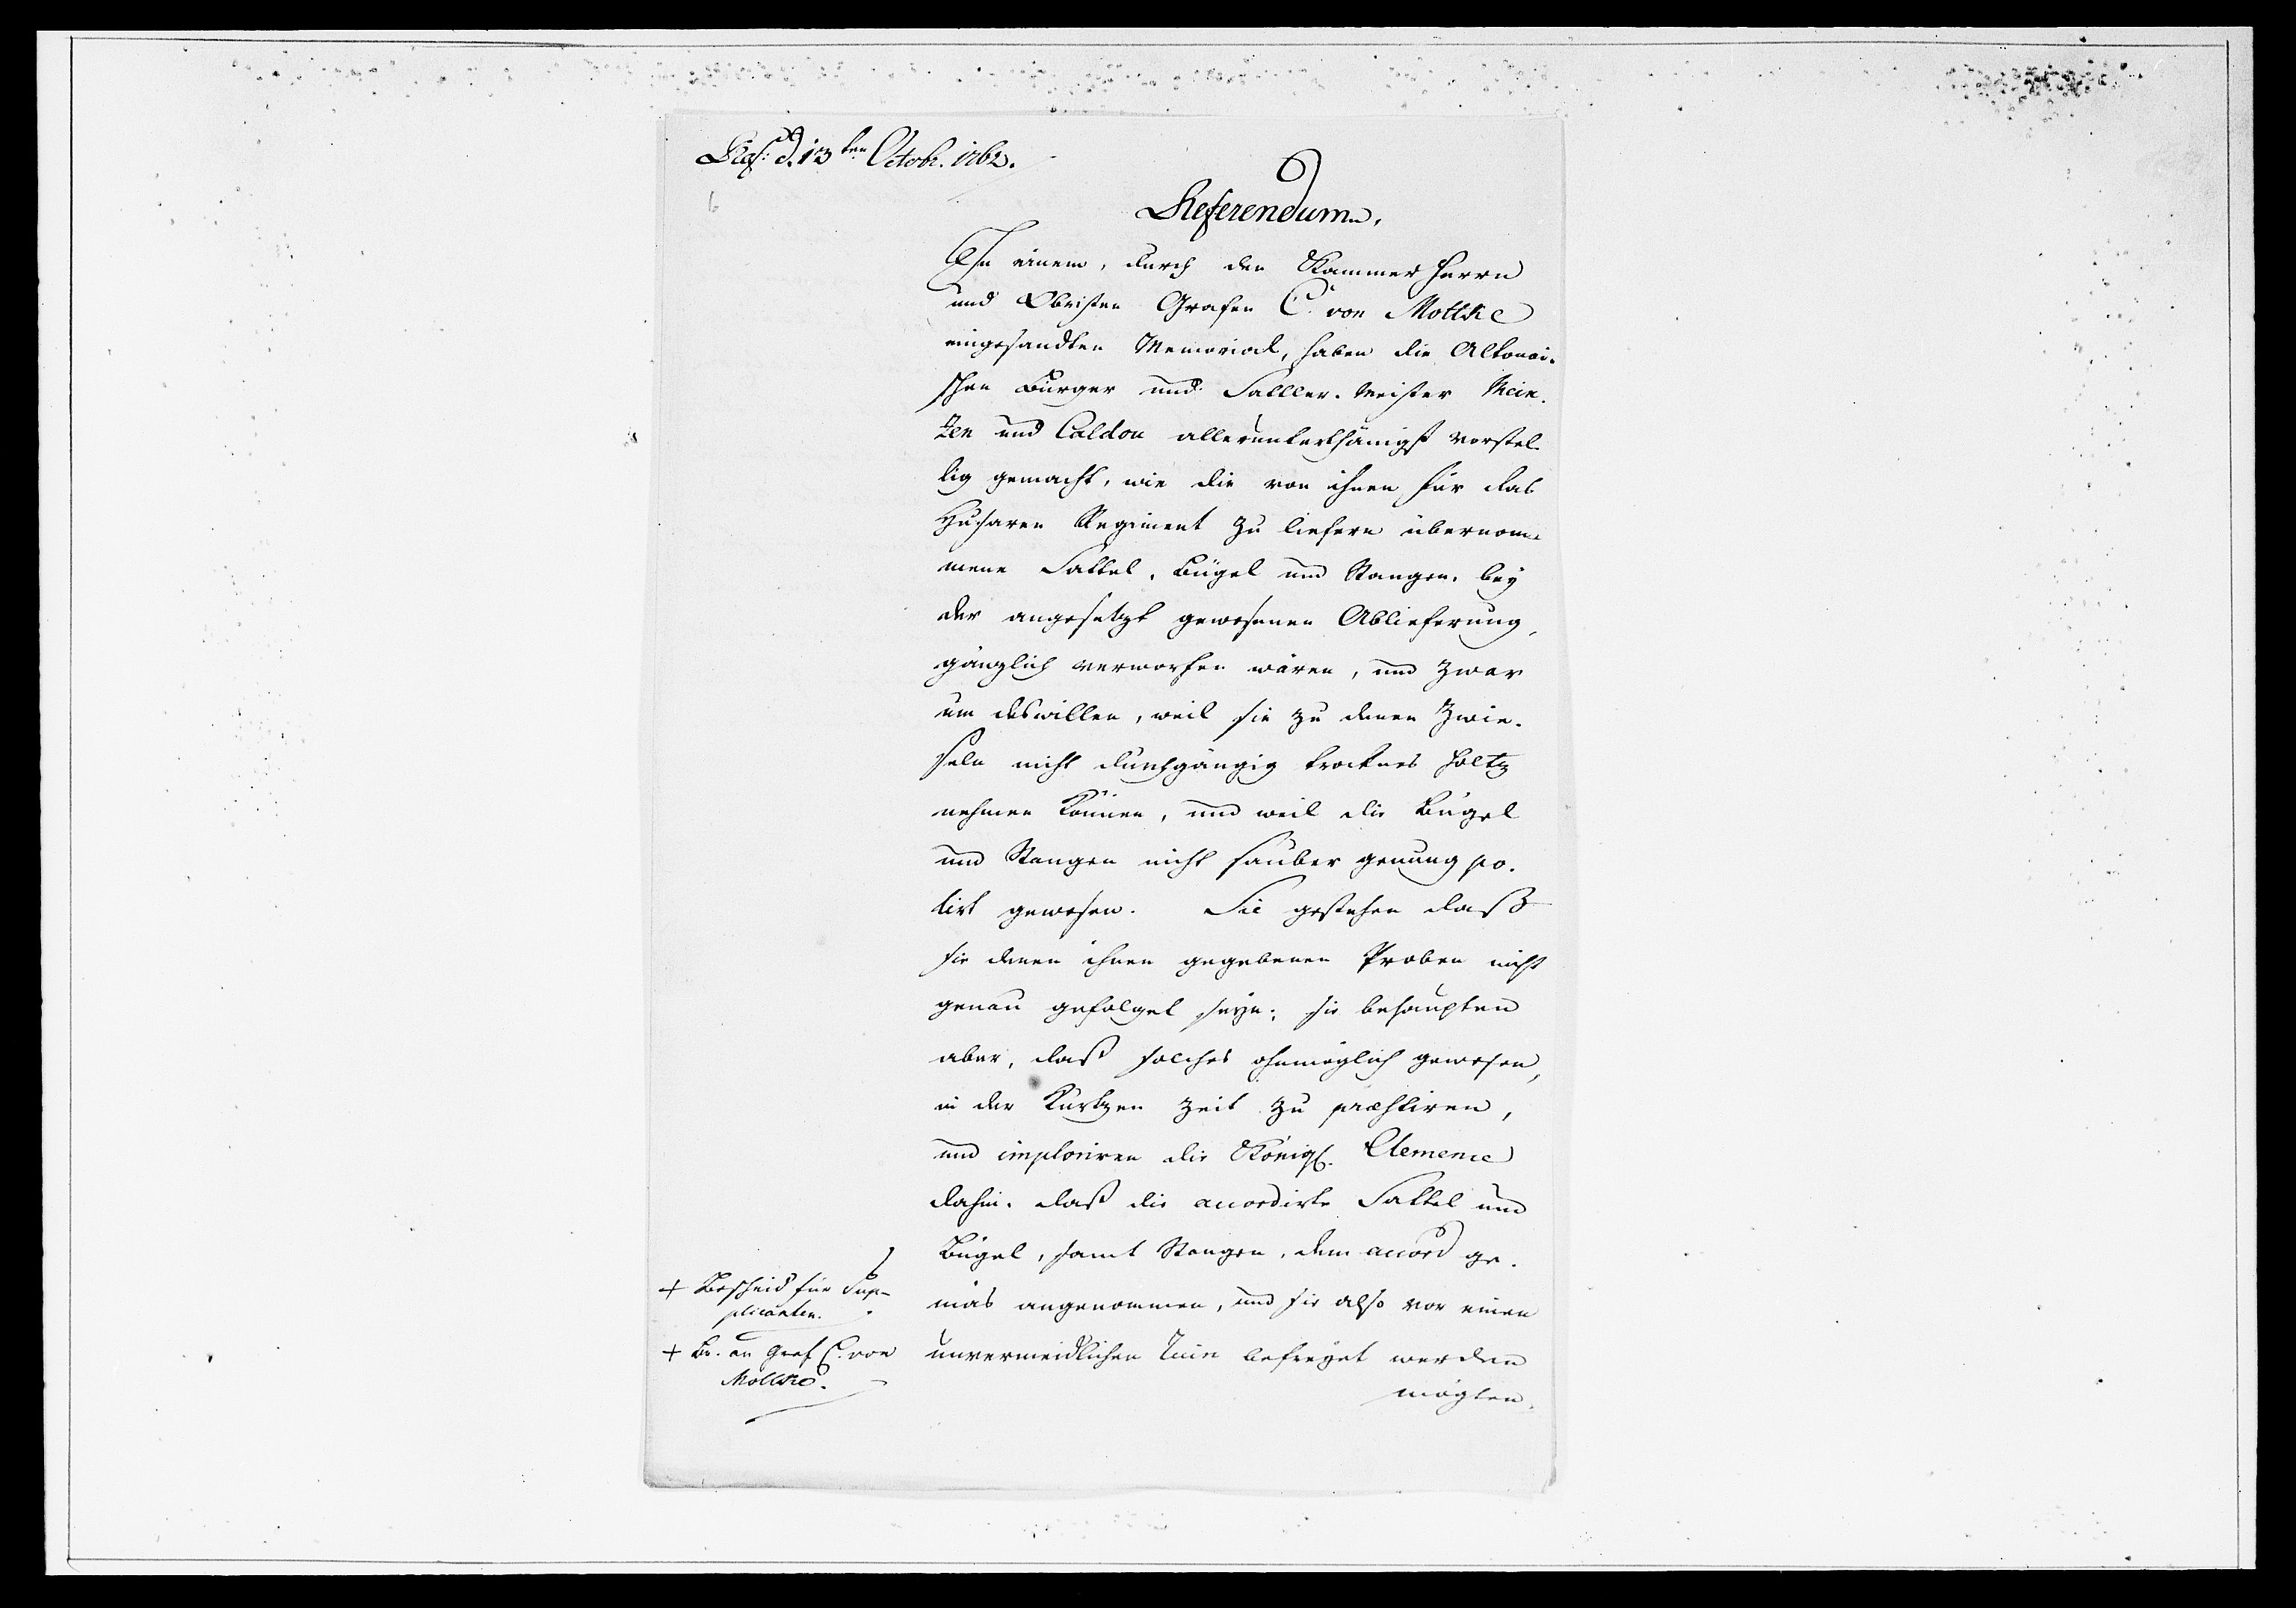 Res: d. 13ten Octobr. 1762.
6
Referendum.
In einem, durch den Kammer Herrn
und Obristen Grafen C. von Moltke
eingesandten Memorial, haben die Altonai-
schen Bürger und Sattler-Meister Mein-
zen und Caldou allerunterthänigst vorstel-
lig gemacht, wie die von ihnen für das
Husaren Regiment zu liefern übernom-
mene Sattel, Bügel und Stangen, bey
der angesetzt gewesenen Ablieferung,
gänzlich verworfen wären, und zwar
um deswillen, weil sie zu denen Zwie-
seln nicht durchgängig trocknes Holtz
nehmen können, und weil die Bügel
und Stangen nicht sauber genung po-
lirt gewesen. Sie gestehen daß
sie denen ihnen gegebenen Proben nicht
genau gefolget seyn; sie behaupten
aber, daß solches ohnmöglich gewesen,
in der kurtzen Zeit zu præstiren,
und imploriren die Königl. Clemence
dahin, daß die accordirte Sattel und
Bügel, samt Stangen, dem accord ge-
mäs angenommen, und sie also vor einen
unvermeidlichen Ruin befreyet werden
mögten.
+ Bescheid für Sup-
plicanten.
+ Br. an Graf C. von
Moltke.